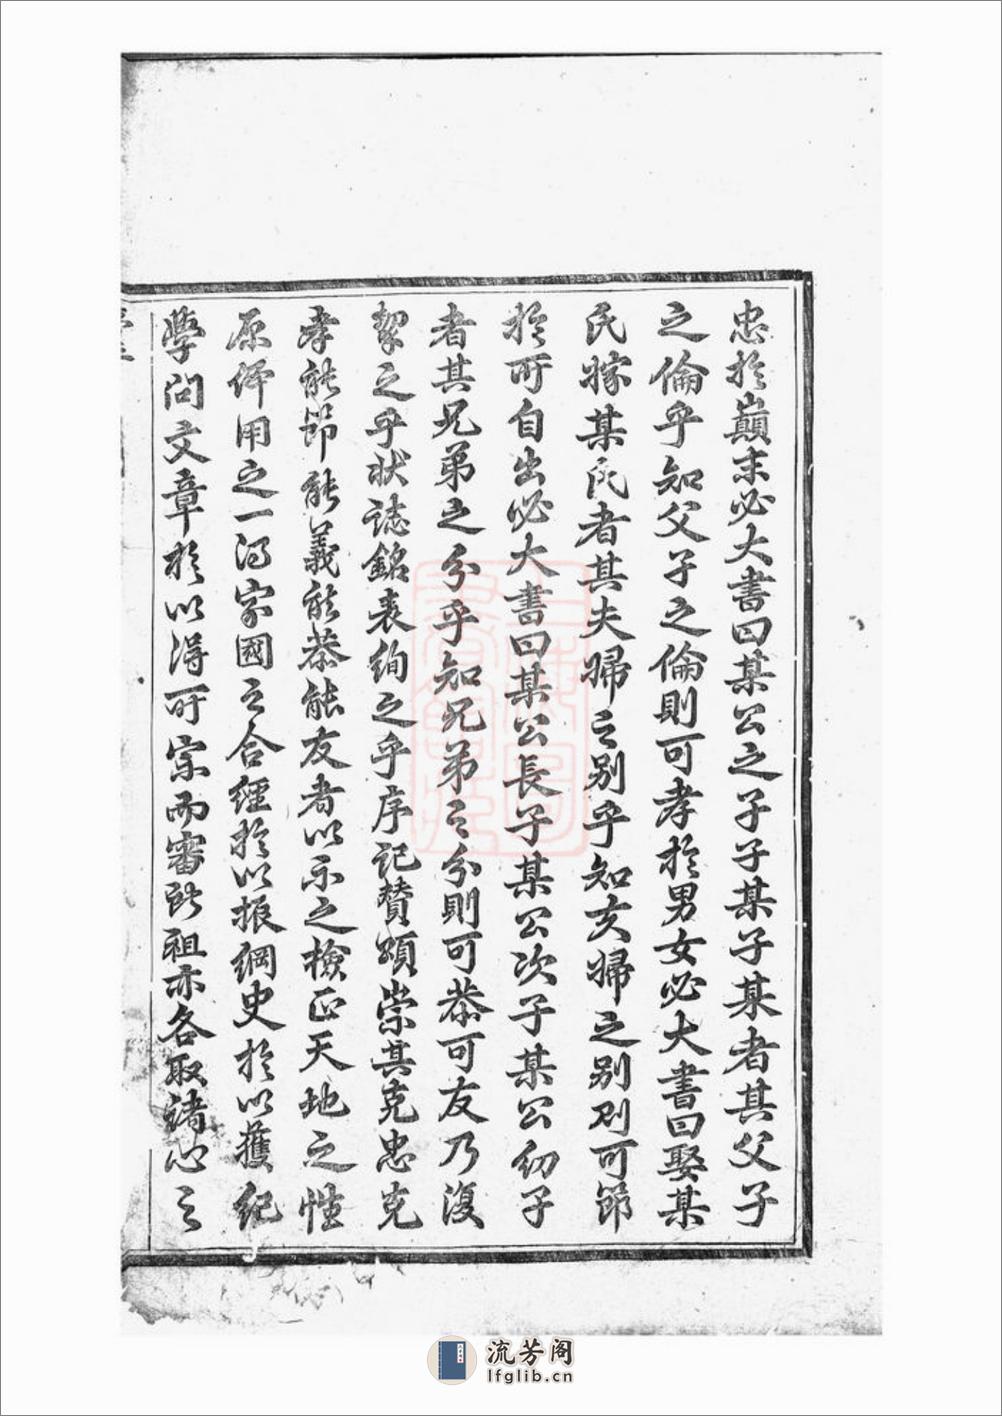 忠於巔末必大書曰某公之子子某子某者其父子
之倫乎知父子之倫則可孝於男女必大書曰娶某
氏嫁某氏者其夫婦之别乎知夫婦之别則可節
於所自出必大書曰某公長子某公次子某公幼子
者其兄弟之分乎知兄弟之分則可恭可友乃復
挈之乎狀誌銘表絢之乎序記贊頌崇其克忠克
孝能節能義能恭能友者以示之檢正天地之性
原俾用之一得家國之合經於以振綱史於以獲紀
學問文章於以得所宗而審所祖亦各取諸心之
流芳阁
lfglib.cn